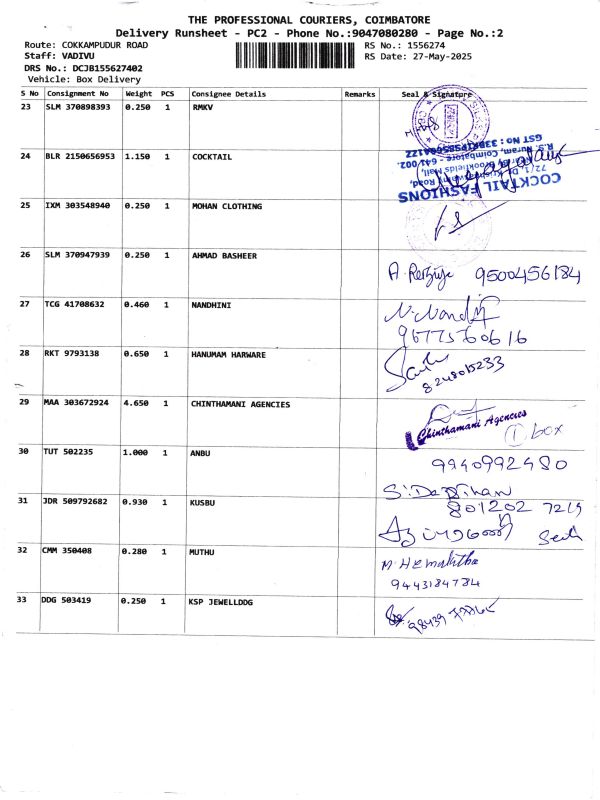 THE PROFESSIONAL COURIERS, COIMBATORE
Delivery Runsheet - PC2 - Phone No.:9047080280 - Page No.:2
Route: COKKAMPUDUR ROAD RS No.: 1556274
Staff: VADIVU RS Date: 27-May-2025
DRS No.: DCJB155627402
Vehicle: Box Delivery
S No Consignment No Weight PCS Consignee Details Remarks Seal & Signature
23 SLM 370898393 0.250 1 RMKV
24 BLR 2150656953 1.150 1 COCKTAIL
COCKTAIL FASHIONS
72/1, Dr. Krishnaswamy Road,
R.S. Puram, Coimbatore - 641 002.
25 IXM 303548940 0.250 1 MOHAN CLOTHING
26 SLM 370947939 0.250 1 AHMAD BASHEER
9500456184
27 TCG 41708632 0.460 1 NANDHINI
N. Nandhi
28 RKT 9793138 0.650 1 HANUMAM HARWARE
8248015233
29 MAA 303672924 4.650 1 CHINTHAMANI AGENCIES
Chinthamani Agencies
1 box
30 TUT 502235 1.000 1 ANBU
9940992480
31 JDR 509792682 0.930 1 KUSBU
801202 7219
32 CMM 350408 0.280 1 MUTHU
M. Hemalatha
9443184784
33 DDG 503419 0.250 1 KSP JEWELLDDG